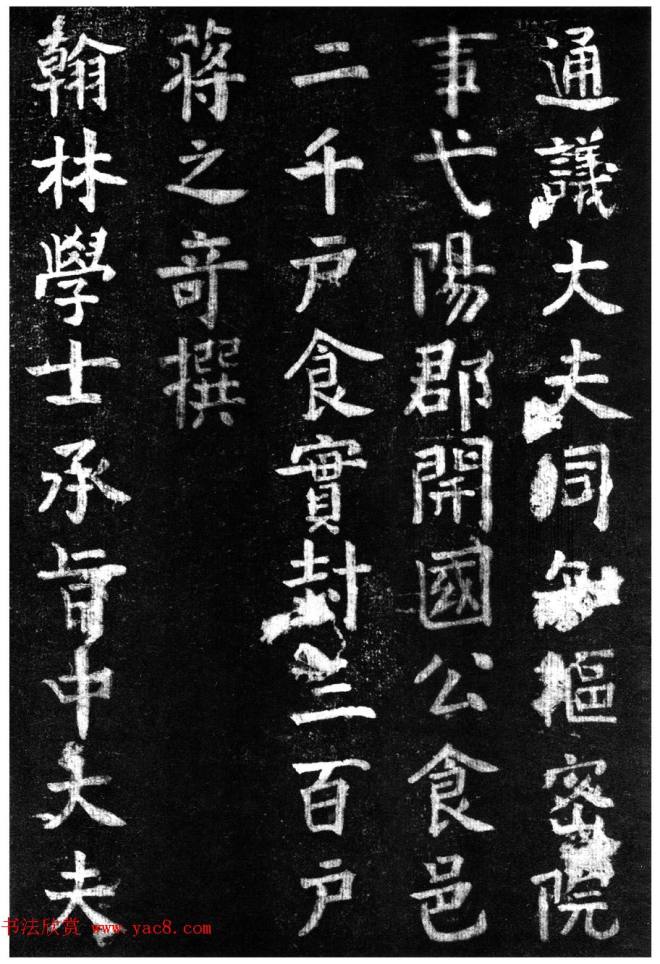 通議大夫同知樞密院
事弋陽郡開國公食邑
二千户食實封三百户
蔣之奇撰
翰林學士承旨中大夫
书法欣赏 www.yac8.com